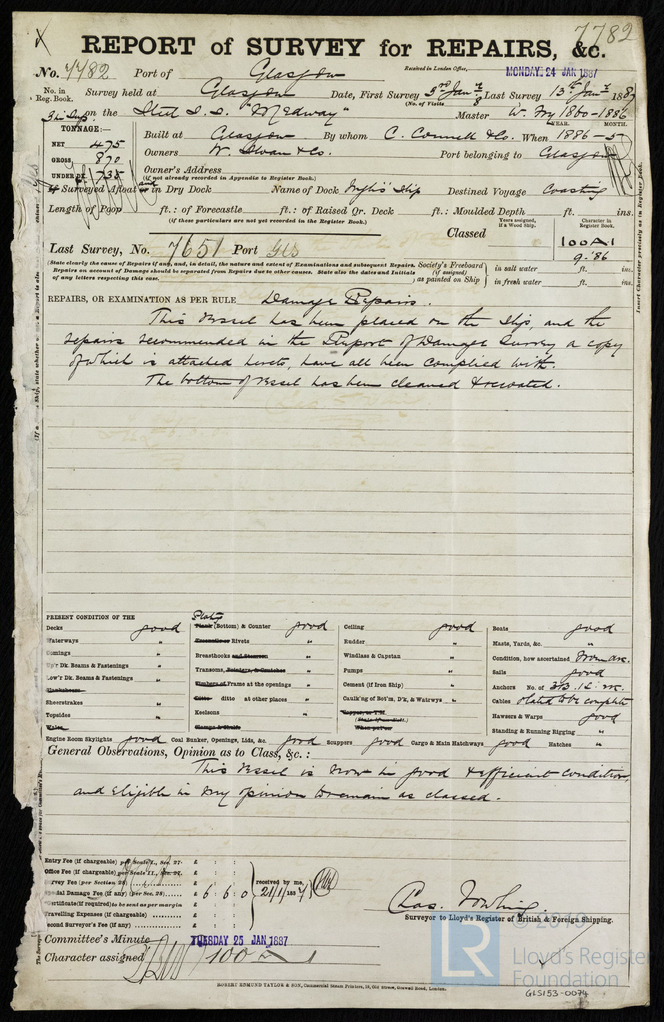 7782
REPORT of SURVEY for REPAIRS, &c.
No. 7782 Port of Glasgow Received in London Office, MONDAY. 24 JAN 1887
No. in Reg. Book. Survey held at Glasgow Date, First Survey 3rd Jany Last Survey 13th Jany 1887
(No. of Visits 8)
on the Steel S.S. "Medway" Master
YEAR. MONTH.
TONNAGE:—
NET 475
GROSS 870
UNDER DK 735
Built at Glasgow By whom C. Connell & Co. When 1886-5
Owners W. Sloan & Co. Port belonging to Glasgow
Owner's Address
(if not already recorded in Appendix to Register Book.)
Surveyed Afloat or in Dry Dock Name of Dock Slip Destined Voyage Coasting
Length of Poop ft.: of Forecastle ft.: of Raised Qr. Deck ft.: Moulded Depth ft. ins.
(if these particulars are not yet recorded in the Register Book.)
Years assigned, if a Wood Ship. Character in Register Book.
Classed 100A1
9.'86
Last Survey, No. 7651 Port Gls
(State clearly the cause of Repairs if any, and, in detail, the nature and extent of Examinations and subsequent Repairs.
Repairs on account of Damage should be separated from Repairs due to other causes. State also the dates and Initials
of any letters respecting this case.
Society's Freeboard (if assigned) as painted on Ship
in salt water ft. ins.
in fresh water ft. ins.
REPAIRS, OR EXAMINATION AS PER RULE Damage Repairs.
This Vessel has been placed on the slip, and the
repairs recommended in the Report of Damage Survey a copy
of which is attached hereto, have all been complied with.
The bottom of Vessel has been cleaned & recoated.
PRESENT CONDITION OF THE
Decks good
Waterways "
Comings "
Up'r Dk. Beams & Fastenings "
Low'r Dk. Beams & Fastenings "
Sheerstrakes "
Topsides "
Wales
Plates
Plank (Bottom) & Counter good
Rivets "
Breasthooks and Stemson "
Transoms, "
Timbers of Frame at the openings "
Ditto ditto at other places "
Keelsons "
Clamps & Shelfs
Ceiling good
Rudder "
Windlass & Capstan "
Pumps "
Cement (if Iron Ship) "
Caulk'ng of Bot'm, D'k, & Watrwys "
Boats good
Masts, Yards, &c. "
Condition, how ascertained
Sails good
Anchors No. of 3B. 1S.
Cables stated to be complete
Hawsers & Warps good
Standing & Running Rigging "
Engine Room Skylights good Coal Bunker, Openings, Lids, &c. good Scuppers good Cargo & Main Hatchways good Hatches "
General Observations, Opinion as to Class, &c.:
This Vessel is now in good & efficient condition,
and eligible in my opinion to remain as classed.
Entry Fee (if chargeable) per Scale I., Sec. 27. £ : :
Office Fee (if chargeable) per Scale II., £ : :
Survey Fee (per Section 28) £ : :
Special Damage Fee (if any) (per Sec. 28) £ 6 : 6 : 0
Certificate (if required) to be sent as per margin
Travelling Expenses (if chargeable) £ : :
Second Surveyor's Fee (if any) £ : :
received by me, 21/1/1887
Surveyor to Lloyd's Register of British & Foreign Shipping.
Committee's Minute TUESDAY 25 JAN 1887
Character assigned 100A1
ROBERT EDMUND TAYLOR & SON, Commercial Steam Printers, 19, Old Street, Goswell Road, London.
LR
Lloyd's Register
Foundation
GLS153-0074